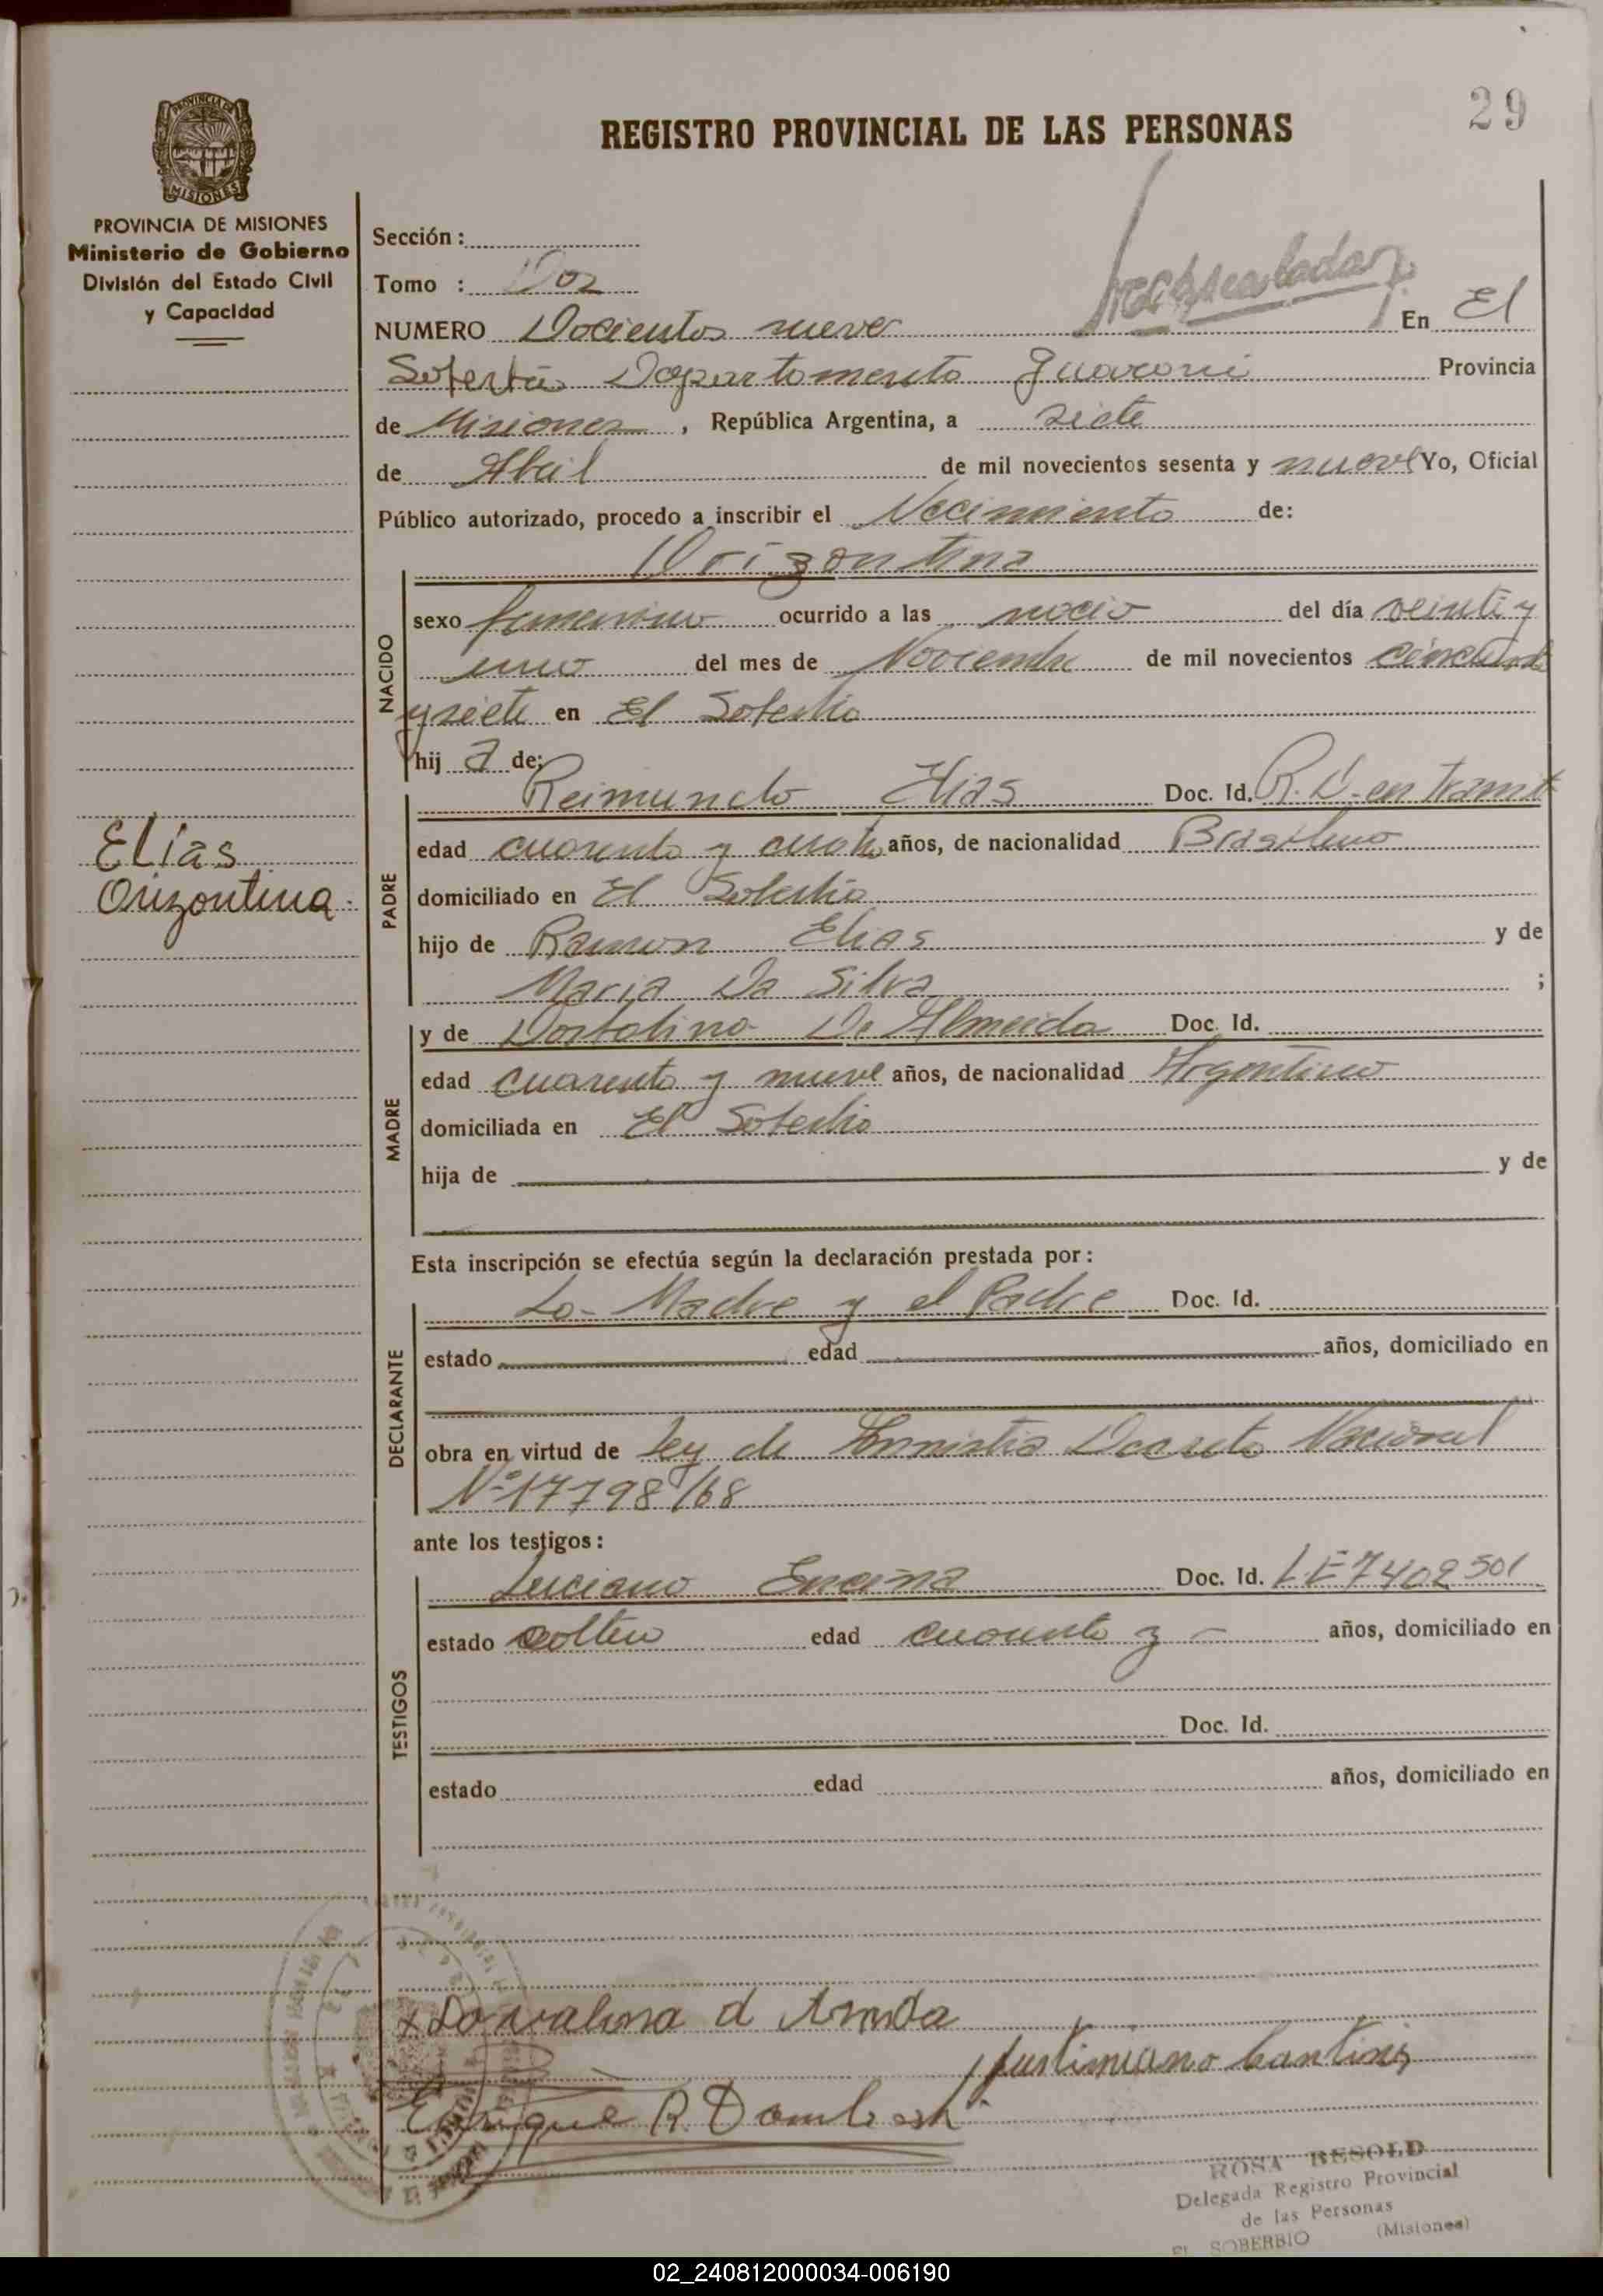 29
REGISTRO PROVINCIAL DE LAS PERSONAS
PROVINCIA DE MISIONES
MISIONES
PROVINCIA DE MISIONES
Ministerio de Gobierno
División del Estado Civil
y Capacidad
Elías
Orizontina.
Sección :
Tomo : Dos
NUMERO Docientos nueve En El
Soberbio Departamento Guarani Provincia
de Misiones, República Argentina, a siete
de Abril de mil novecientos sesenta y nueve Yo, Oficial
Público autorizado, procedo a inscribir el Nacimiento de:
Orizontina
NACIDO
sexo femenino ocurrido a las del día veinti y
uno del mes de Noviembre de mil novecientos cincuenta
y siete en El Soberbio
hij a de:
PADRE
Reimundo Elias Doc. Id. R. D. en tramite
edad cuarenta y cuatro años, de nacionalidad Brasileno
domiciliado en El Soberbio
hijo de Ramon Elias y de
Maria Da Silva ;
MADRE
y de De Almeida Doc. Id.
edad cuarenta y nueve años, de nacionalidad Argentino
domiciliada en El Soberbio
hija de y de
Esta inscripción se efectúa según la declaración prestada por :
DECLARANTE
La Madre y el Padre Doc. Id.
estado edad años, domiciliado en
obra en virtud de Ley de Amnistia Decreto Nacional
Nº 17798/68
ante los testigos :
TESTIGOS
Luciano Encina Doc. Id. LE 7402501
estado soltero edad cuarenta y - años, domiciliado en
Doc. Id.
estado edad años, domiciliado en
x Dorvalina d
Justiniano
Enrique R.
ROSA BESOLD
Delegada Registro Provincial
de las Personas
EL SOBERBIO (Misiones)
02_240812000034-006190